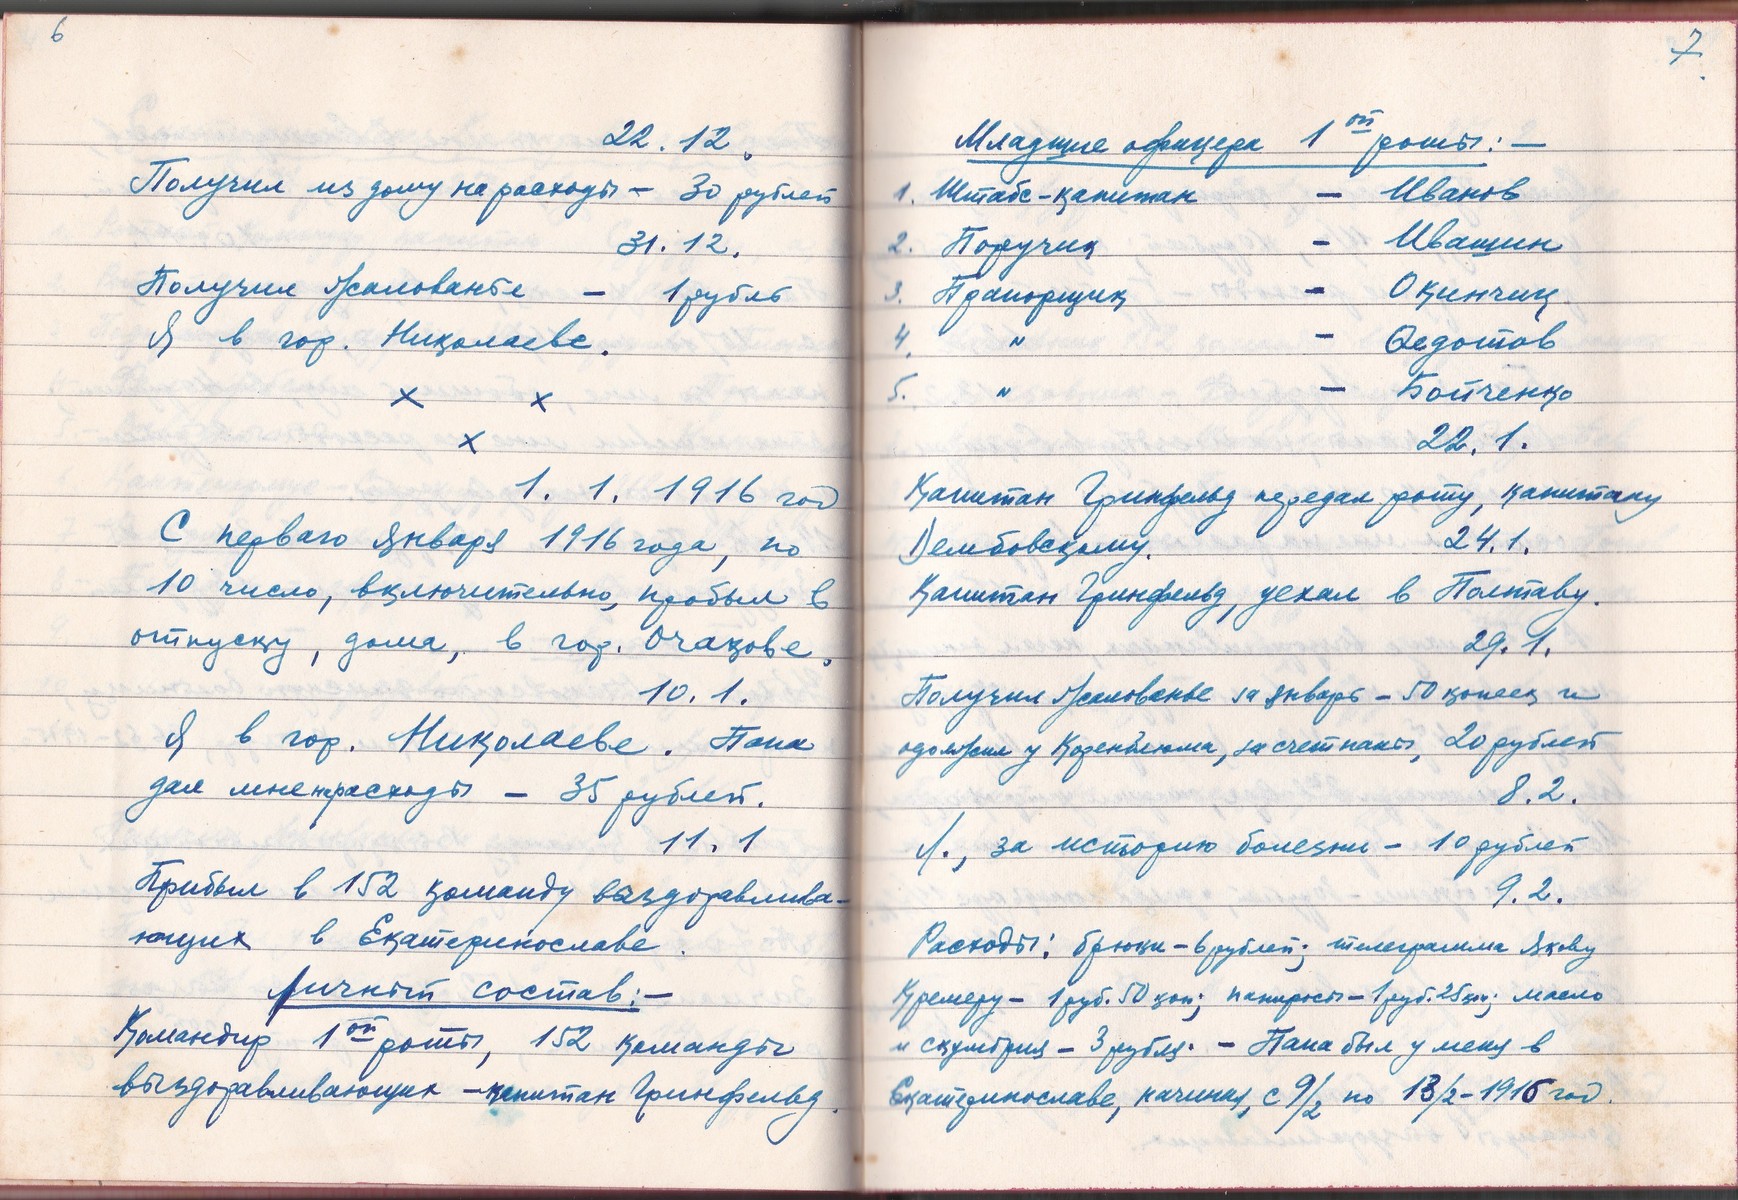 6
22.12.
Получил из дому на расходы – 30 рублей
31.12.
Получил жалованье – 1 рубль
Я в гор. Николаеве.
х х
х
1. 1. 1916 год
С первого января 1916 года, по
10 число, включительно, пробыл в
отпуску, дома, в гор. Очакове.
10.1.
Я в гор. Николаеве. Папа
дал мне на расходы – 35 рублей.
11.1
Прибыл в 152 команду выздоравлива-
ющих в Екатеринославе.
Личный состав:–
Командир 1ой роты, 152 команды
выздоравливающих – капитан Гринфельд.
7.
Младшие офицера 1ой роты:–
1. Штабс-капитан – Иванов
2. Поручик – Ивашин
3. Прапорщик – Окинчиц
4. " – Федотов
5. " – Бойченко
22.1.
Капитан Гринфельд передал роту, капитану
Дембовскому. 24.1.
Капитан Гринфельд, уехал в Полтаву.
29.1.
Получил жалованье за январь – 50 копеек и
одолжил у Коренблюма, за счет папы, 20 рублей
8.2.
Л., за историю болезни – 10 рублей
9.2.
Расходы: брюки – 6 рублей; телеграмма Якову
Кремеру – 1 руб. 50 коп; папиросы – 1 руб. 25 коп; масло
и скумбрия – 3 рубля. – Папа был у меня в
Екатеринославе, начиная, с 9/2 по 13/2 – 1916 год.